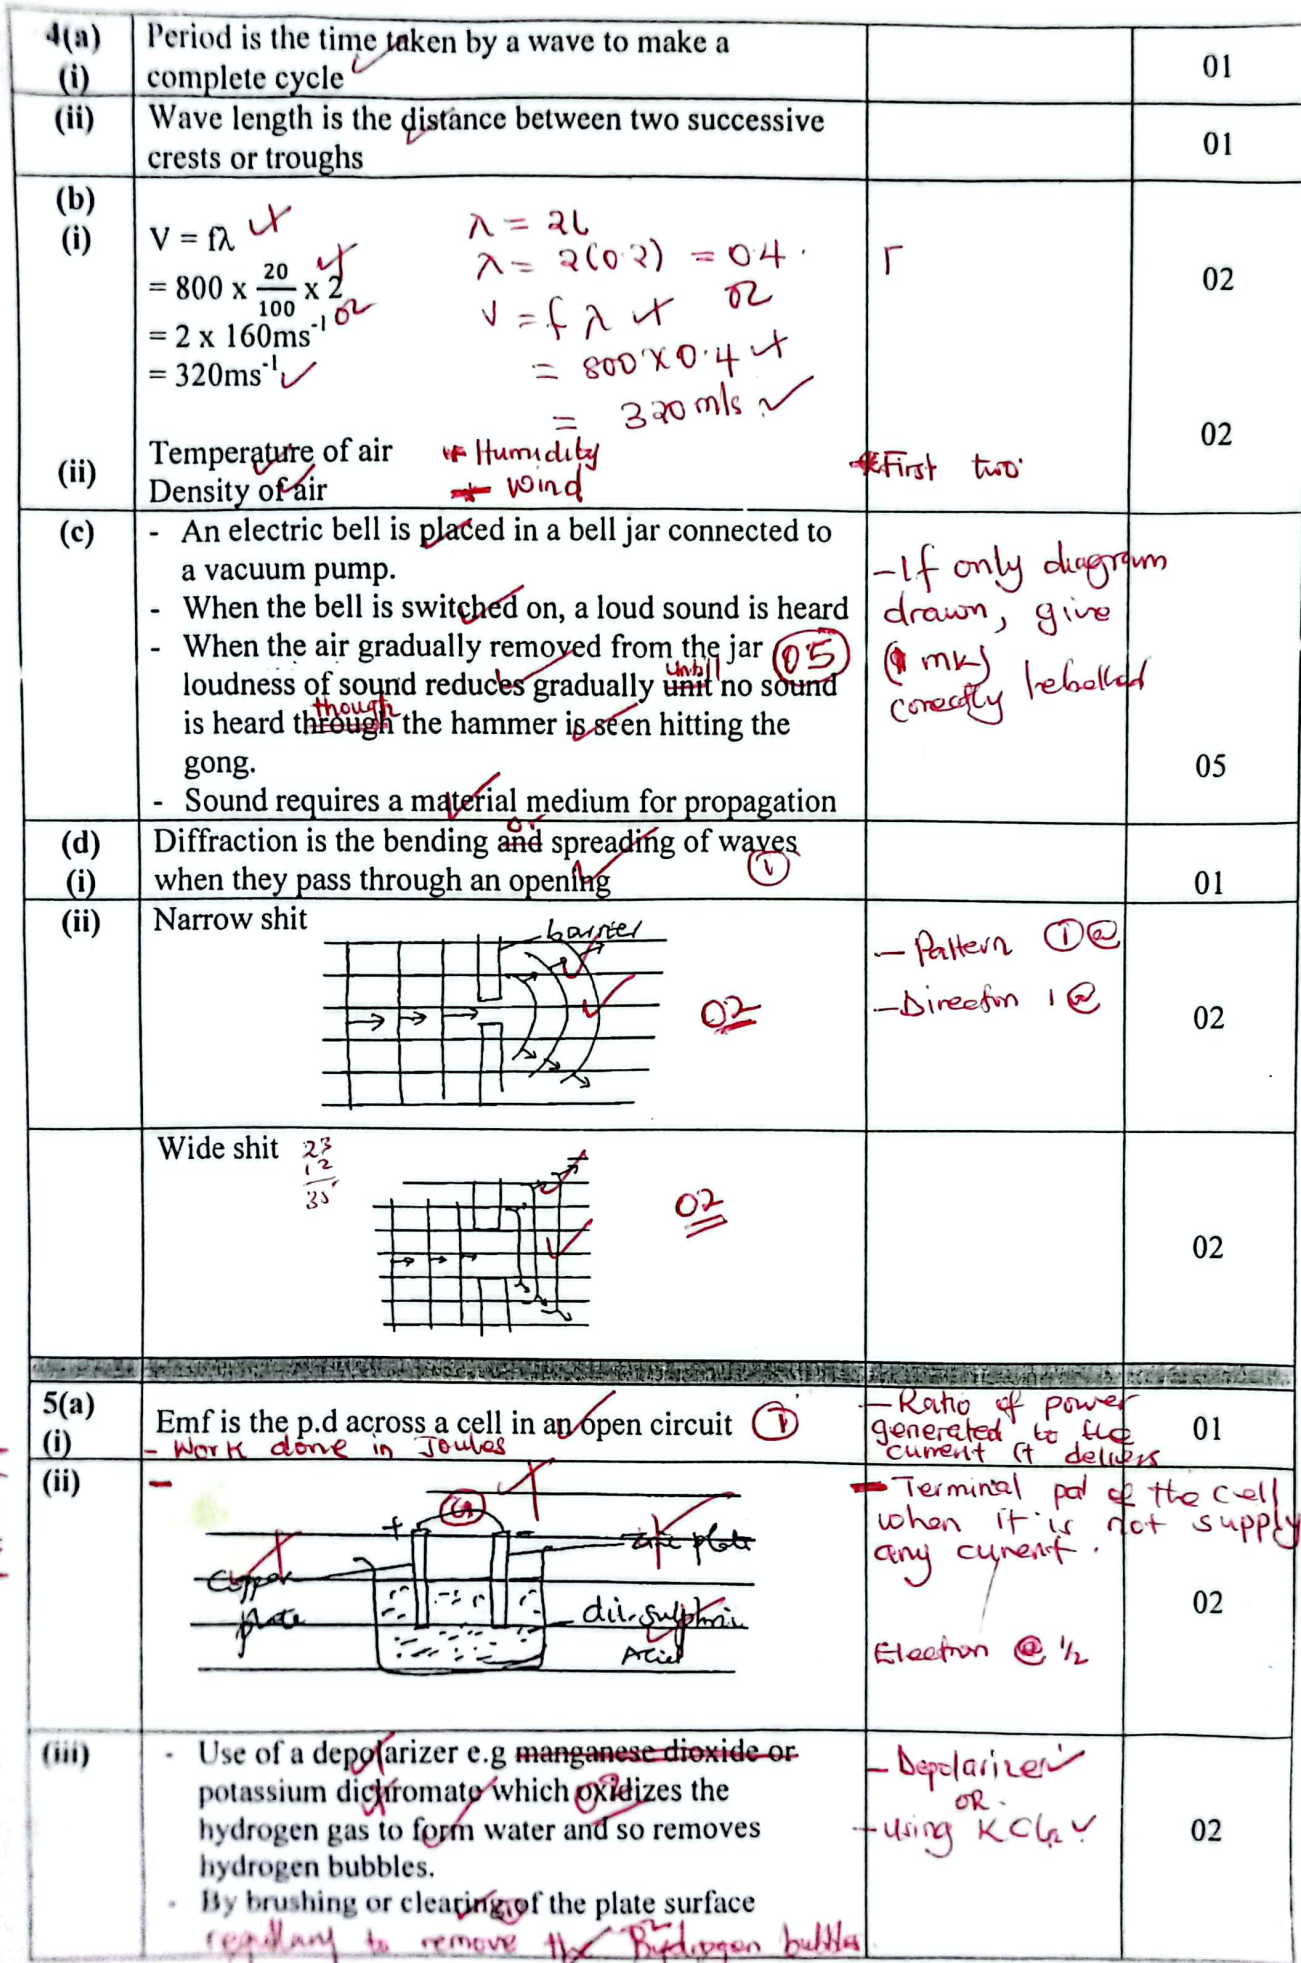 4(a) Period is the time taken by a wave to make a
(i) complete cycle 01
(ii) Wave length is the distance between two successive
crests or troughs 01
(b)
(i) V = fλ
= 800 x 20/100 x 2
= 2 x 160ms⁻¹ 02
= 320ms⁻¹
λ = 2l
λ = 2(0.2) = 0.4.
V = fλ 02
= 800 x 0.4
= 320 m/s
02
(ii) Temperature of air * Humidity * First two
Density of air * Wind 02
(c) - An electric bell is placed in a bell jar connected to
a vacuum pump.
- When the bell is switched on, a loud sound is heard
- When the air gradually removed from the jar 05
loudness of sound reduces gradually unit until no sound
is heard through though the hammer is seen hitting the
gong.
- Sound requires a material medium for propagation
- If only diagram
drawn, give
(1 mk)
correctly lebelled
05
(d) Diffraction is the bending and or spreading of waves
(i) when they pass through an opening 1 01
(ii) Narrow shit
barrier
02
- Pattern 1 @
- Direction 1 @
02
Wide shit
23
12
35
02
02
5(a)
(i) Emf is the p.d across a cell in an open circuit 1
- Work done in Joules
- Ratio of power
generated to the
current it delivers
01
(ii)
+ -
Copper
plate
zinc plate
dil. sulphuric
Acid
- Terminal pd of the cell
when it is not supply
any current.
Electron @ 1/2
02
(iii) - Use of a depolarizer e.g manganese dioxide or
potassium dichromate which oxidizes the
hydrogen gas to form water and so removes
hydrogen bubbles.
- By brushing or clearing of the plate surface
regullary to remove the Hydrogen bubbles
- Depolarizer
OR.
- using
02